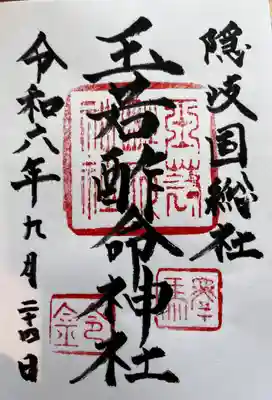 隠岐国総社
玉若酢命神社
令和六年九月二十四日